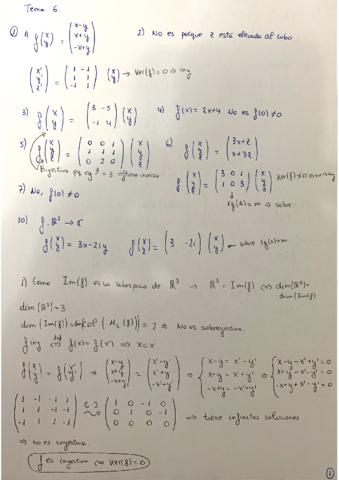 Tema 6.
① 1) f(x y) = (x-y x+y -x+y) 2) No es porque z está elevada al cubo
(x' y' z') = (1 -1 1 1 -1 1) (x y) → Ker(f) = 0 ⇒ iny
3) f(x y) = (3 -5 -1 4) (x y) 4) f(x) = 2x+4 No es f(0) ≠ 0
5) f(x y z) = (0 0 1 1 1 1 0 2 0) (x y z) 6) f(x y z) = (3x+z x+3z)
Biyectiva pq rg f = 3 ⇒ tiene inversa
f(x y z) = (3 0 1 1 0 3) (x y z) Ker(f) ≠ 0 ⇒ no iny
rg(2) = m → sobre.
7) No, f(0) ≠ 0
10) f: ℝ² → ℂ
f(x y) = 3x - 2iy f(x y) = (3 -2i) (x y) sobre rg(2) = m
1) Como Im(f) es un subespacio de ℝ³ → ℝ³ = Im(f) ⇔ dim(ℝ³) =
dim(Im(f))
dim(ℝ³) = 3
dim(Im(f)) = 2 ⇒ No es sobreyectiva.
f iny ⇔ def f(x) = f(x') ⇒ x = x'
f(x y) = f(x' y') ⇒ (x-y x+y -x+y) = (x'-y' x'+y' -x'+y') ⇒ {x-y = x'-y' x+y = x'+y' -x+y = -x'+y' ⇒ {x-y-x'+y' = 0 x+y-x'-y' = 0 -x+y+x'-y' = 0
(1 -1 -1 1 1 1 -1 -1 -1 1 1 -1) G-J (1 0 -1 0 0 1 0 -1 0 0 0 0) ⇒ tiene infinitas soluciones
⇒ no es inyectiva.
f es inyectiva ⇔ Ker(f) = 0
①